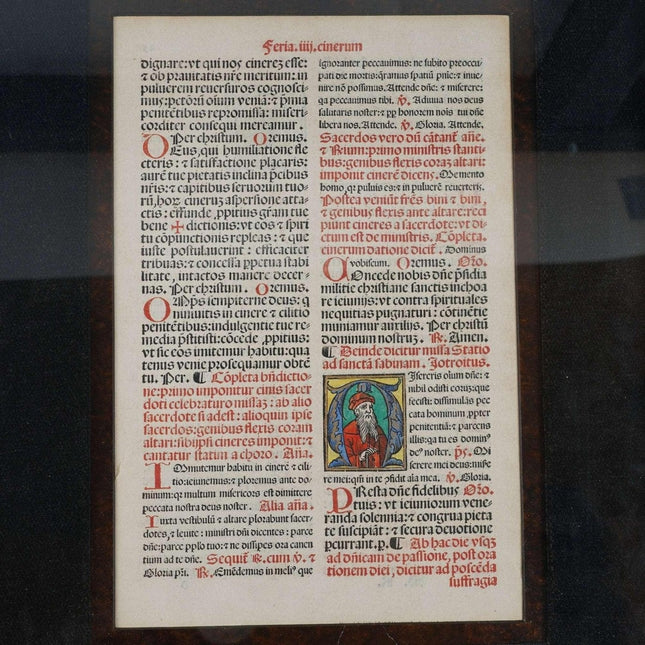 Feria .iiij. cinerum
dignare: vt qui nos cineres esse:
& ob prauitatis nr̄e meritum: in
puluerem reuersuros cognosci-
mus: petōrū oīum veniā: & p̄mia
penitētibus repromissa: miseri-
corditer consequi mereamur.
Per christum. Oremus.
DEus, qui humiliatione fle
cteris: & satisfactione placaris:
aurē tue pietatis inclina p̄cibus
nr̄is: & capitibus seruorum tuo-
rū, hor̨ cinerū aspersione atta-
ctis: effunde ,ppitius gr̄am tue
bene ✠ dictionis: vt eos & spiri
tu cōpunctionis repleas: & que
iuste postulauerint: efficaciter
tribuas: & concessa ppetua stabi
litate, intactos manere decer-
nas. Per christum. Oremus.
OMp̄s sempiterne deus: q
niniuitis in cinere & cilitio
penitētibus: indulgentie tue re-
media p̄stitisti: cōcede ,ppitius:
vt sic eos imitemur habitu: qua
tenus venie prosequamur obtē
tu. Per. ¶ Cōpleta bn̄dictio-
ne: primo imponitur cinis sacer
doti celebraturo missā: ab alio
sacerdote si adest: alioquin ipse
sacerdos: genibus flexis coram
altari: sibiipsi cineres imponit: &
cantatur statim a choro. Aña.
IMmutemur habitu in cinere & cili-
tio: ieiunemus: & ploremus ante do-
minum: qr multum misericors est dimittere
peccata nostra deus noster. Alia aña.
Iuxta vestibulū & altare plorabunt sacer-
dotes, & leuite: ministri dn̄i dicentes: parce
dn̄e: parce pplo tuo: & ne dissipes ora canen
tium ad te dn̄e. Sequit̄ ℟. cum ℣. &
Gloria pr̄i. ℟. Emēdemus in meliꝰ que
ignoranter peccauimus: ne subito preoccu-
pati die mortis: q̄ramus spatiū pn̄ie: & inue-
nire nō possimus. Attende dn̄e: & miserere:
qa peccauimus tibi. ℣. Adiuua nos deus
salutaris noster: & pp honorem nois tui dn̄e
libera nos. Attende. ℣. Gloria. Attende.
Sacerdos vero dū cātant̄ añe.
& ℟ium: primo ministris stanti-
bus: genibus flexis coraȝ altari:
imponit cinerē dicens. Memento
homo, qr puluis es: & in puluerē reuerteris.
Postea veniūt fr̄es bini & bini,
& genibus flexis ante altare: reci
piunt cineres a sacerdote: vt di-
ctum est de ministris. Cōpleta.
cinerum datione dicit̄. Dominus
vobiscum. Oremus. Orō.
COncede nobis dn̄e p̄sidia
militie christiane sanctis inchoa
re ieiunijs: vt contra spirituales
nequitias pugnaturi: cōtinētie
muniamur auxilijs. Per christū
dominum nostruȝ. ℟. Amen.
¶ Deinde dicitur missa Statio
ad sanctā sabinam. Introitus.
MIsereris oīum dn̄e: &
nihil odisti eoruȝ: que
fecisti: dissimulās pec
cata hominum ,ppter
penitentiā: & parcens
illis: qa tu es dominꝰ
deꝰ noster. p̄s. Mi
serere mei deus: mise
re mei: qm̄ in te ꝯfidit aīa mea. ℣. Gloria.
PResta dn̄e fidelibus Orō.
tuis: vt ieiuniorum vene-
randa solennia: & congrua pieta
te suscipiāt: & secura deuotione
pcurrant. p. ¶ Ab hac die vsqȝ
ad dn̄icam de passione, post ora
tionem diei, dicitur ad poscēda
suffragia